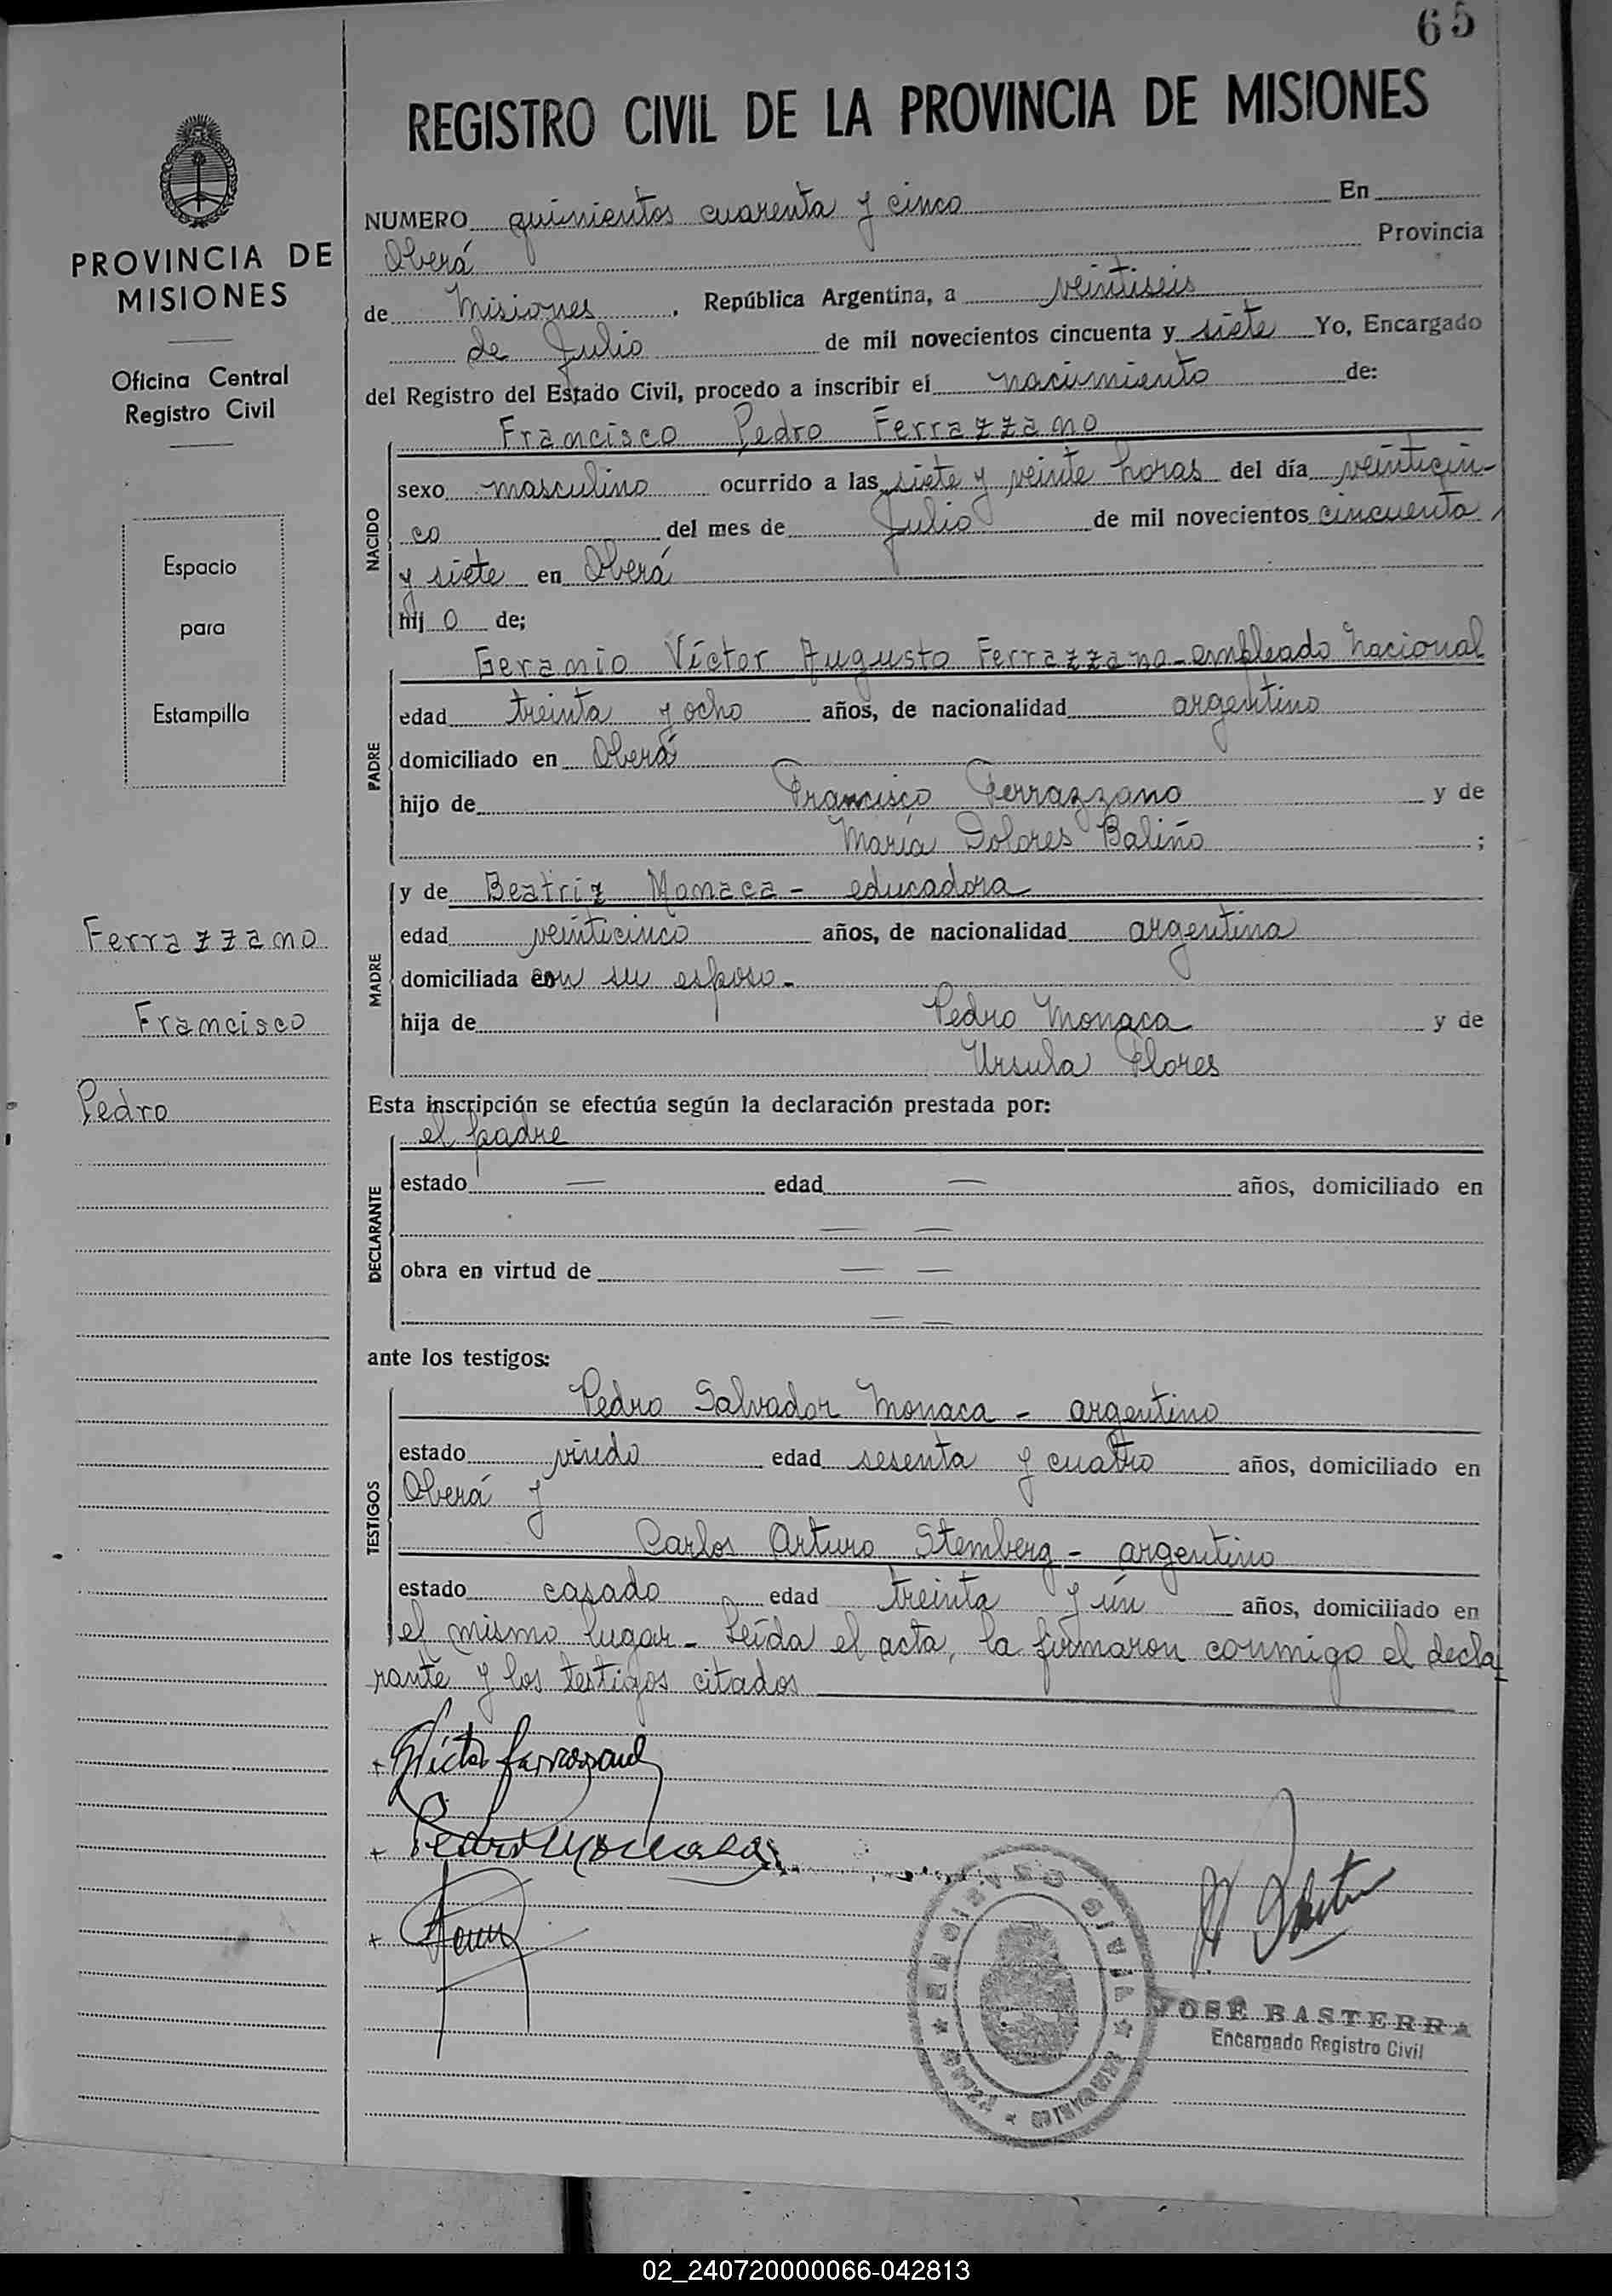 65
REGISTRO CIVIL DE LA PROVINCIA DE MISIONES
PROVINCIA DE
MISIONES
Oficina Central
Registro Civil
Espacio
para
Estampilla
Ferrazzano
Francisco
Pedro
NUMERO quinientos cuarenta y cinco En
Oberá Provincia
de Misiones, República Argentina, a veintiseis
de Julio de mil novecientos cincuenta y siete Yo, Encargado
del Registro del Estado Civil, procedo a inscribir el nacimiento de:
NACIDO
Francisco Pedro Ferrazzano
sexo masculino ocurrido a las siete y veinte horas del día veinticin-
co del mes de Julio de mil novecientos cincuenta
y siete en Oberá
hij o de;
PADRE
Geranio Víctor Augusto Ferrazzano - empleado nacional
edad treinta y ocho años, de nacionalidad argentino
domiciliado en Oberá
hijo de Francisco Ferrazzano y de
María Dolores Baliño ;
MADRE
y de Beatriz Monaca - educadora
edad veinticinco años, de nacionalidad argentina
domiciliada con su esposo -
hija de Pedro Monaca y de
Ursula Flores
Esta inscripción se efectúa según la declaración prestada por:
DECLARANTE
el padre
estado — edad — años, domiciliado en
— —
obra en virtud de — —
— —
ante los testigos:
TESTIGOS
Pedro Salvador Monaca - argentino
estado viudo edad sesenta y cuatro años, domiciliado en
Oberá y
Carlos Arturo Stemberg - argentino
estado casado edad treinta y ún años, domiciliado en
el mismo lugar - Leída el acta, la firmaron conmigo el decla
rante y los testigos citados
REGISTRO CIVIL
JOSE BASTERRA
Encargado Registro Civil
02_240720000066-042813